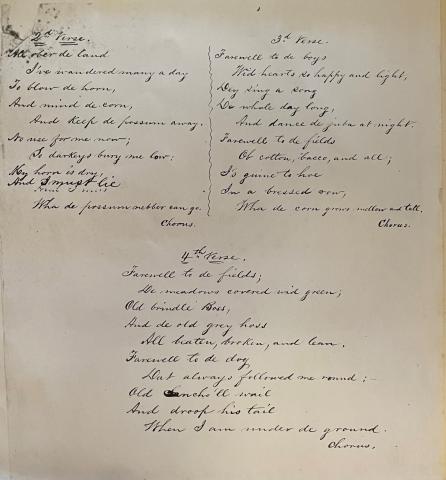 2d Verse.
All ober de land
I've wandered many a day
To blow de horn,
And mind de corn,
And keep de possum away.
No use for me now;
So darkeys bury me low:
My horn is dry,
And I must lie
Wha de possum nebber can go.
Chorus.
3d Verse.
Farewell to de boys
Wid hearts so happy and light,
Dey sing a song
De whole day long,
And dance de juba at night.
Farewell to de fields
Ob cotton, bacco, and all;
I's guine to hoe
In a bressed row,
Wha de corn grows mellow and tall.
Chorus.
4th Verse.
Farewell to de fields;
De meadows covered wid green;
Old brindle Boss,
And de old grey hoss
All beaten, broken, and lean.
Farewell to de dog
Dat always followed me round;
Old Sancho'll wail
And droop his tail
When I am under de ground.
Chorus.